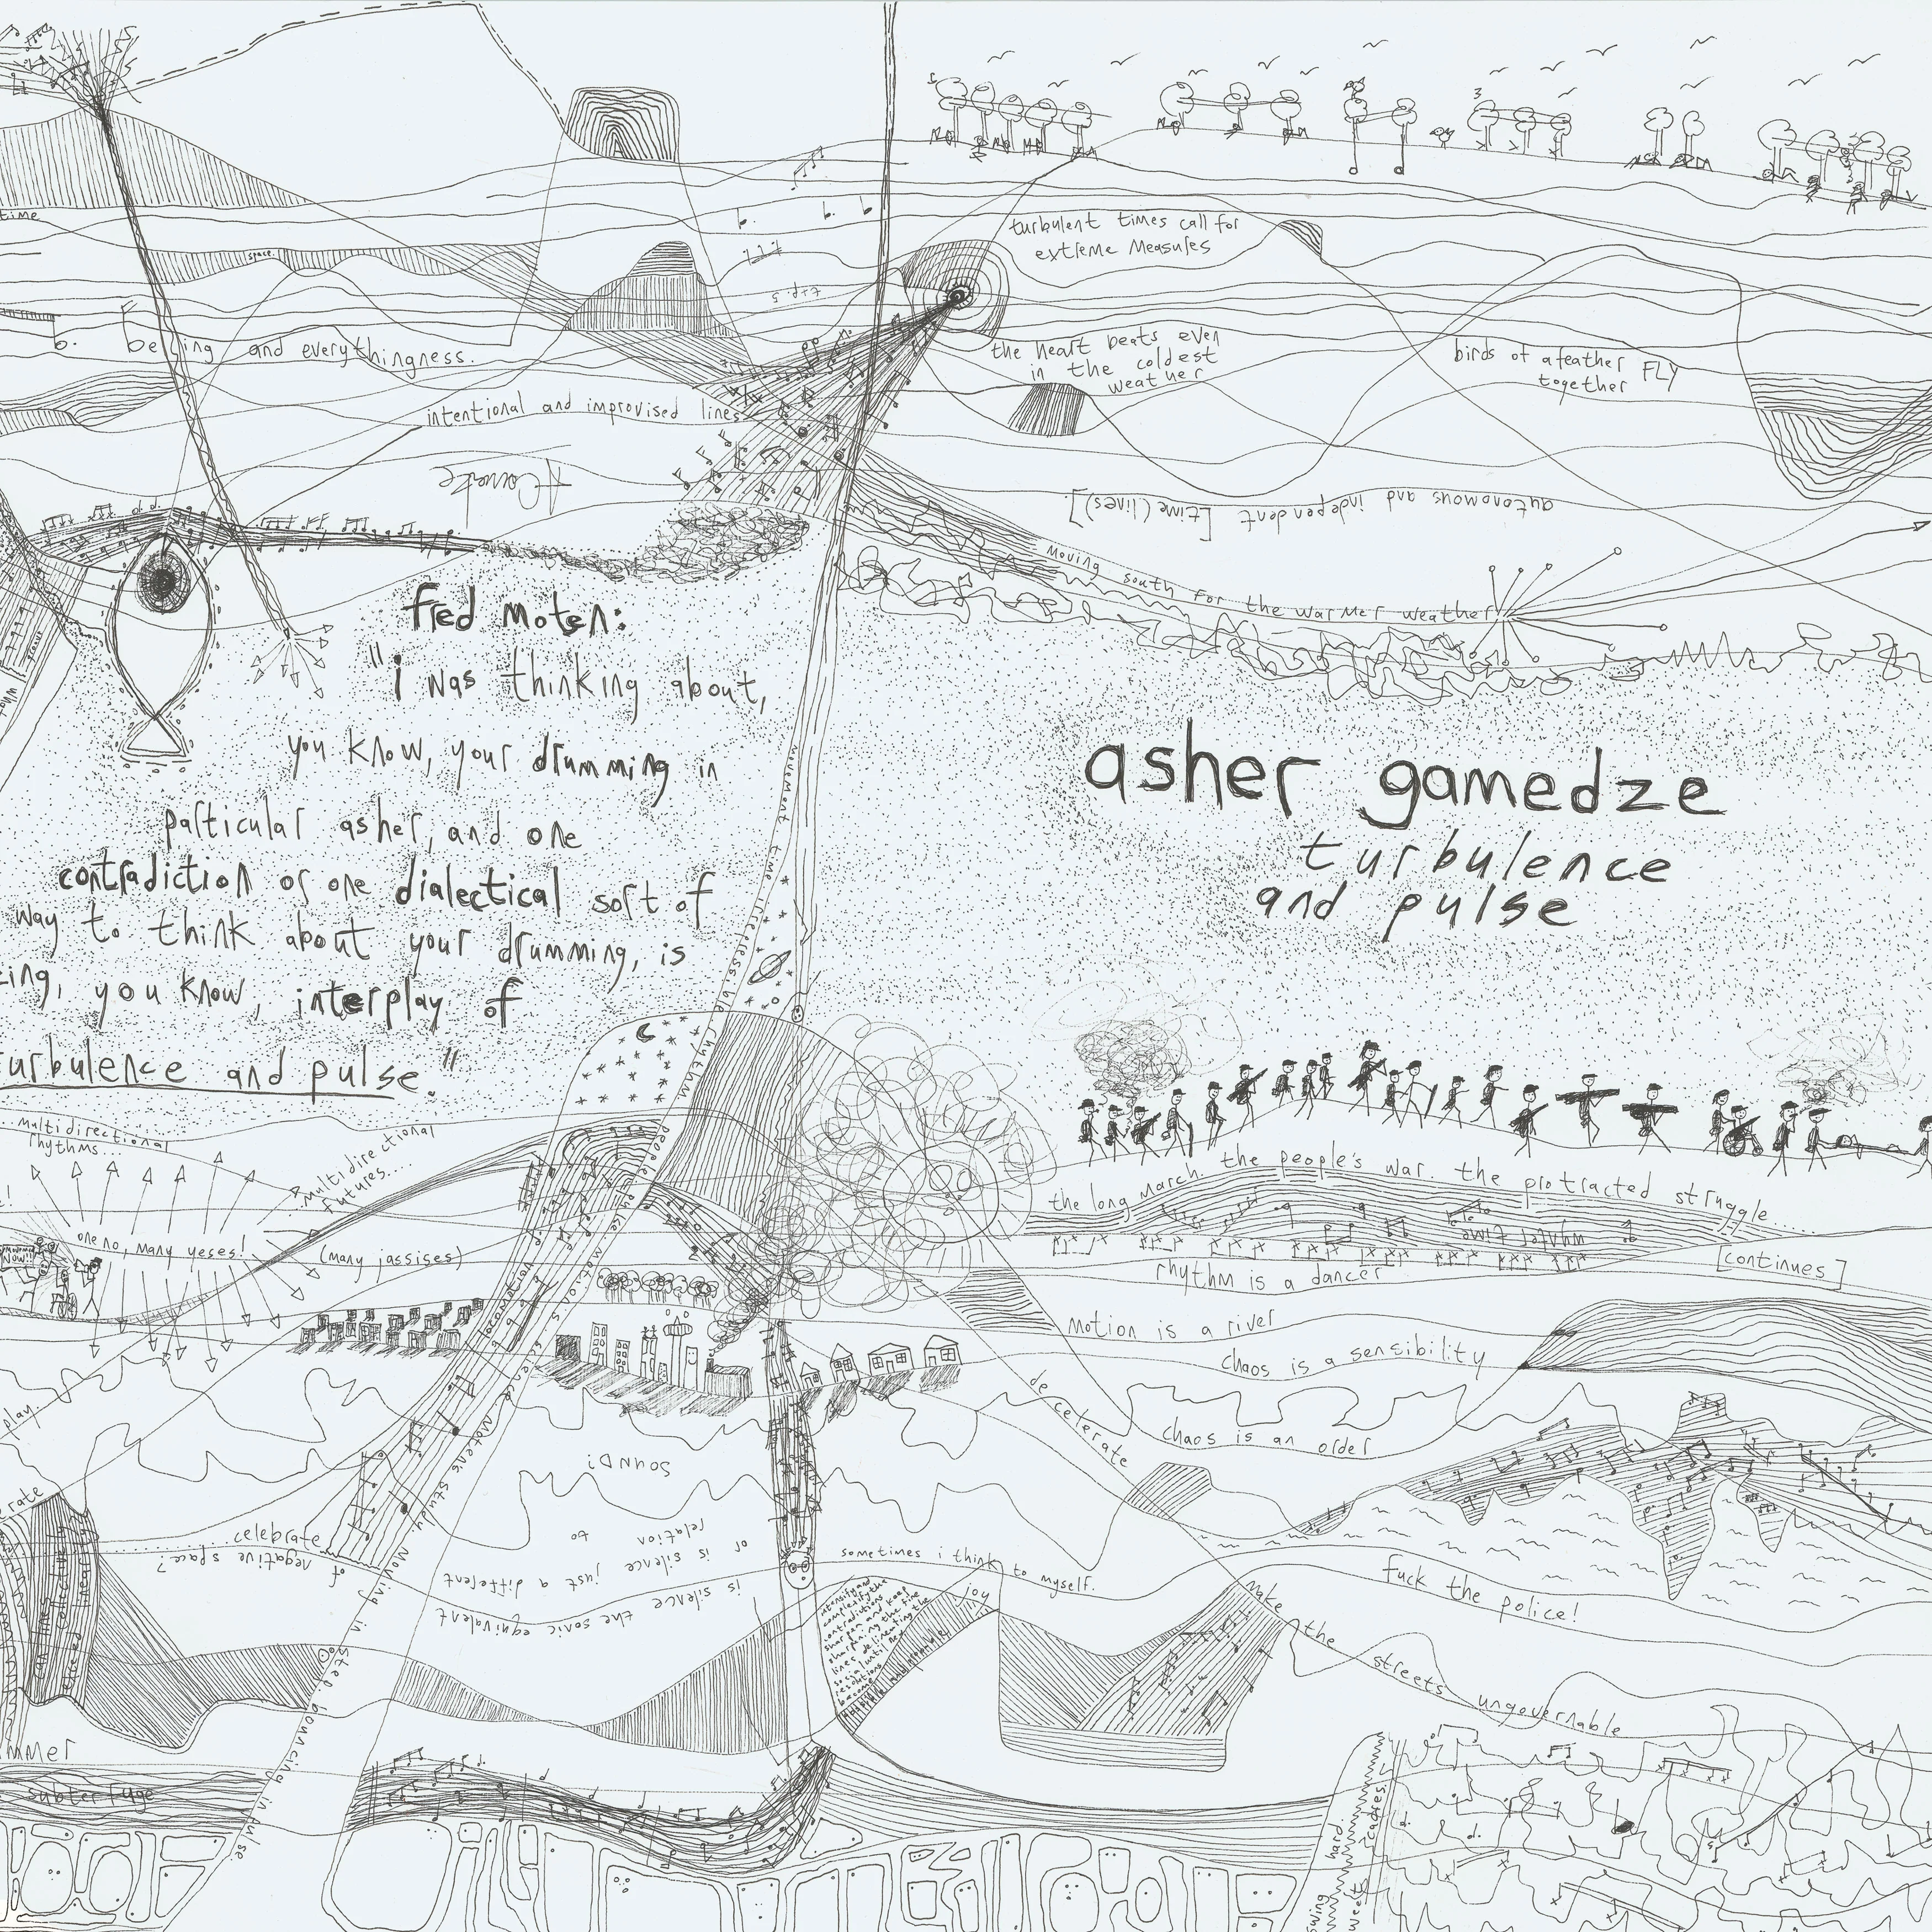 time
space.
turbulent times call for
extreme measures
b.
and everythingness.
the heart beats even
in the coldest
weather
birds of a feather FLY
together
intentional and improvised lines
autonomous and independent [time(lines)].
moving south for the warmer weather!
fred moten:
"i was thinking about,
you know, your drumming in
particular asher, and one
contradiction or one dialectical sort of
way to think about your drumming, is
you know, interplay of
urbulence and pulse."
asher gamedze
turbulence
and pulse
movement
multidirectional
rhythms...
...multidirectional
futures....
one no, many yeses!
(many jassises)
NOW!!
the long march. the people's war. the protracted struggle......
[continues]
rhythm is a dancer
motion is a river
chaos is a sensibility
chaos is an order
decelerate
play.
SOUND?
is silence the sonic equivalent
of negative space?
or is silence just a different
relation to
celebrate
sometimes i think to myself.
joy
fuck the police!
make the streets ungovernable
moving in step. bouncing in pulse.
subterfuge
hard.